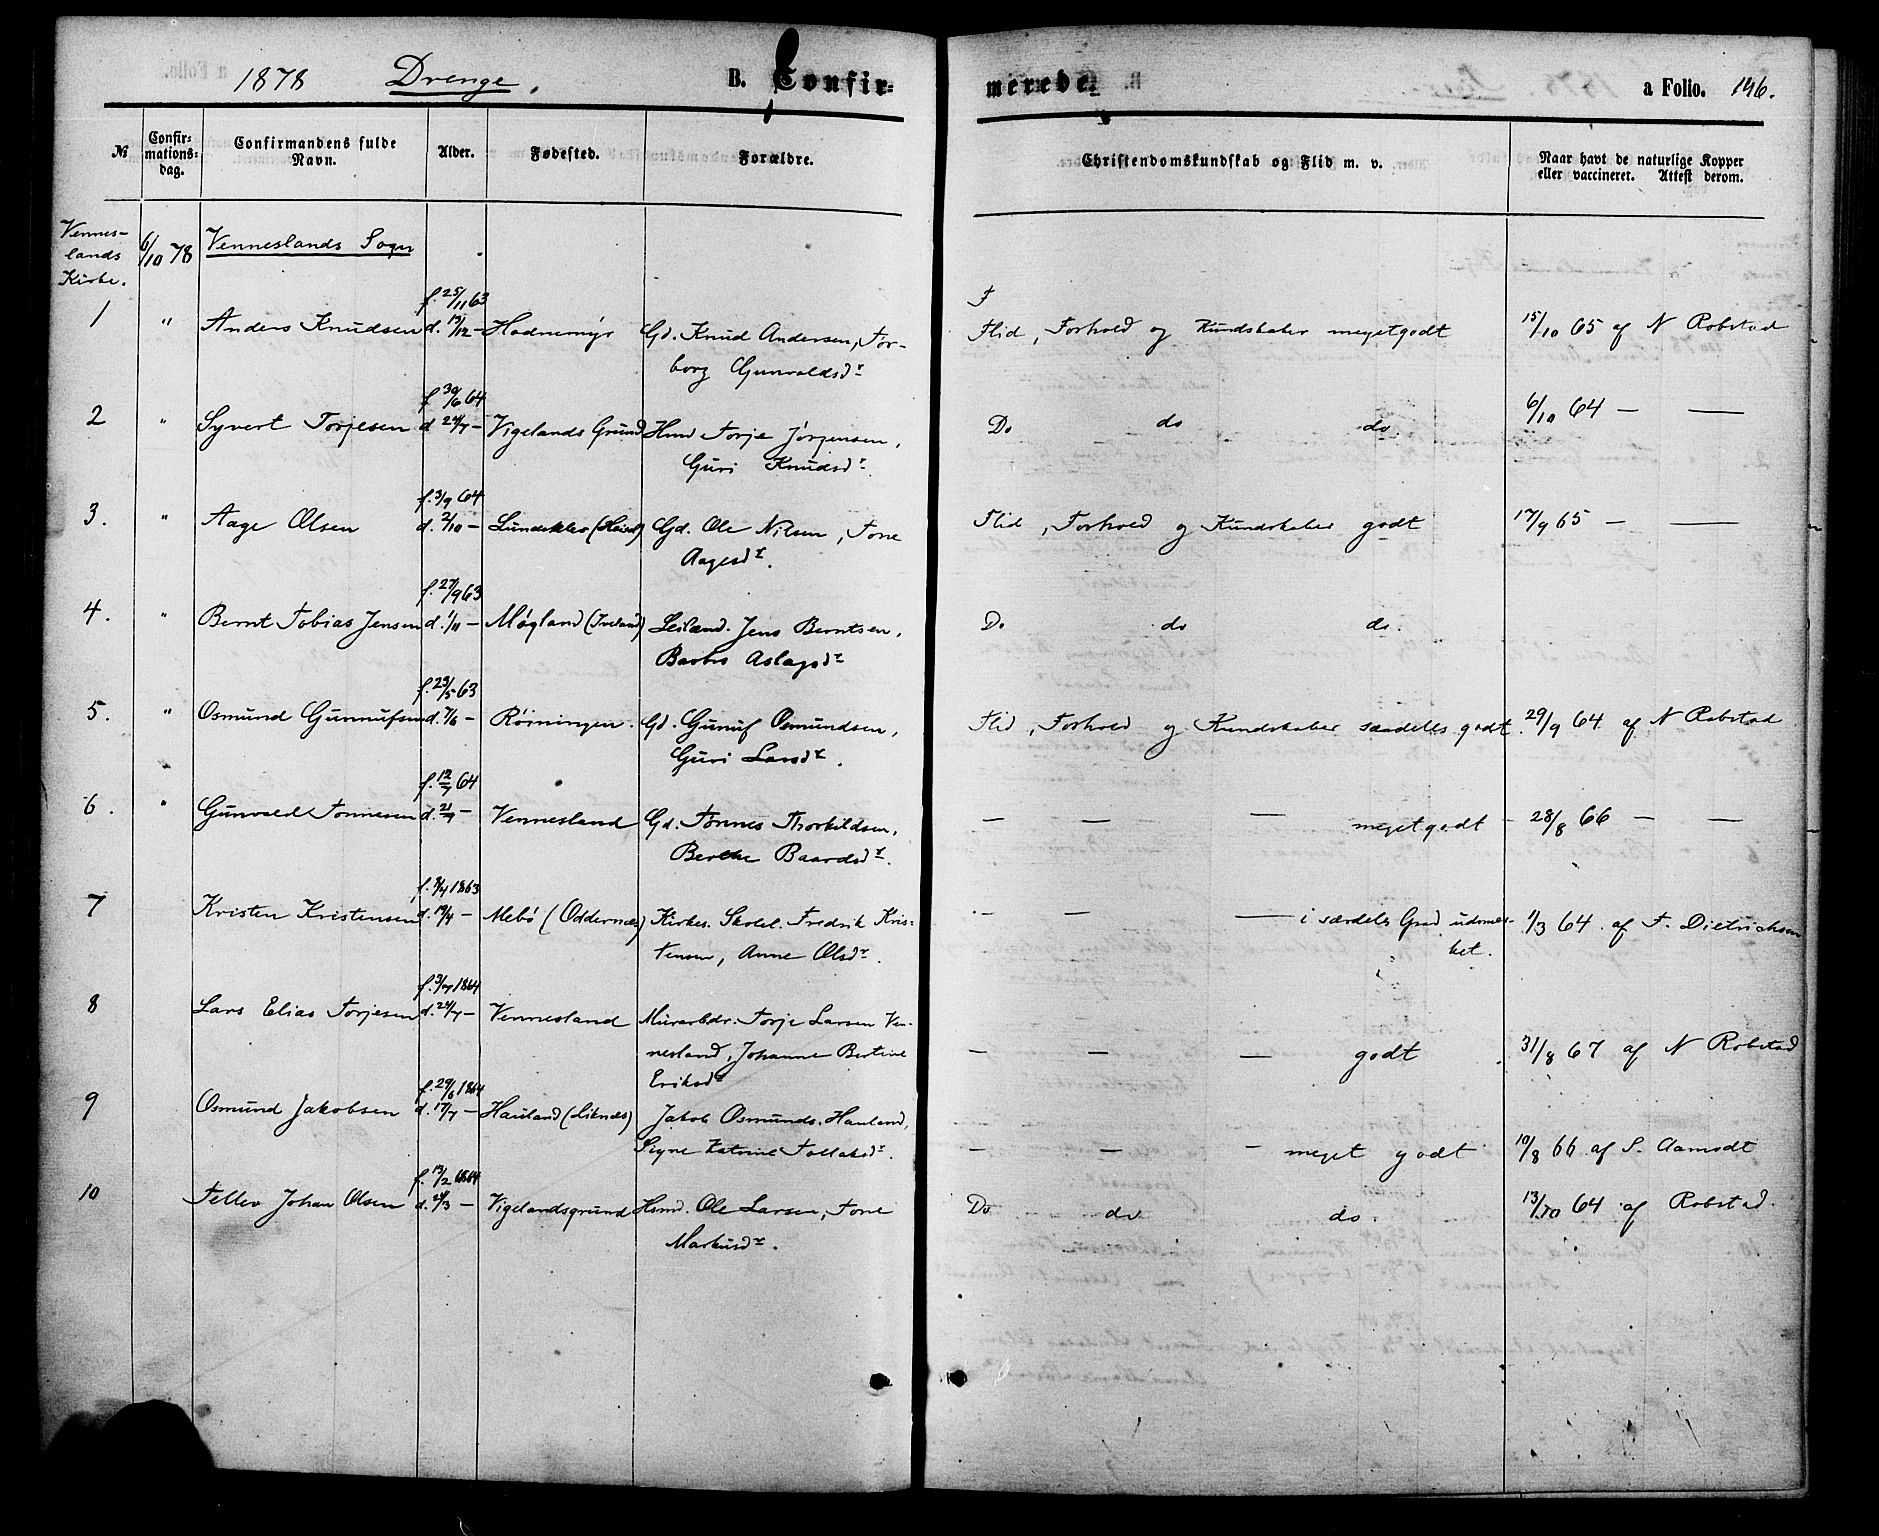 1878 Drenge. B. Confir- merede. a Folio. 146.
№ Confir- mations- dag. Confirmandens fulde Navn. Alder. Fødested. Forældre. Christendomskundskab og Flid m. v. Naar havt de naturlige Kopper eller vaccineret. Attest derom.
Vennes-
lands 6/10 78 Venneslands Sogn
Kirke.
f. 25/11 63 F
1 " Anders Knudsen d. 13/12 - Hodnemyr Gd. Knud Andersen, Tor- Flid, Forhold og Kundskaber megetgodt 15/10 65 af N Robstad
borg Gunvoldsdr
f 30/6 64
2 " Syvert Torjesen d 24/7 - Vigelands Grund Hmd Torje Jørgensen, Do do do. 6/10 64 — —
Guri Knudsdr.
f. 3/9 64
3. " Aage Olsen d. 2/10 - Gd. Ole Nilsen, Tone Flid, Forhold og Kundskaber godt 17/9 65 — —
Aagesdr.
f. 27/9 63
4. " Bernt Tobias Jensen d. 1/11 - Møgland (Iveland) Leilænd. Jens Berntsen, Do do do.
Barbro Aslagsdr
f. 23/5 63
5. " Osmund Gunnufsen d. 7/6 - Røiningen. Gd. Gunuf Osmundsen, Flid, Forhold og Kundskaber særdeles godt. 29/9 64 af N Robstad
Guri Larsdr.
f. 12/7 64
6. " Gunvald Tønnesen d. 21/7 - Vennesland Gd. Tønnes Thorkildsen, — — — megetgodt - 28/8 66 — —
Berthe Baardsdr.
f. 8/4 1863
7 Kristen Kristensen d. 19/4 - Mebø (Oddernæs) Kirkes. Skolel. Fredrik Kris- — — — i særdeles Grad udmær- 1/3 64 af F. Dietrichsen
tensen, Anne Olsdr. ket.
f. 3/7 1864
8 Lars Elias Torjesen d. 24/7 - Vennesland Murarbdr. Torje Larsen Ven-
nesland, Johanne Bertine — — — godt 31/8 67 af N Robstad
Eriksdr
f. 29/6 1864
9 Osmund Jakobsen d. 17/7 - Hauland (Liknes) Jakob Osmunds. Hauland,
Signe Katrine Tollaksdr. — — - meget godt 10/8 66 af S. Aamodt
f. 13/2 1864
10 Tellev Johan Olsen d. 28/3 - Vigelandsgrund Hsmd. Ole Larsen, Tone Do do do. 13/10 64 af Robstad.
Markusdr.